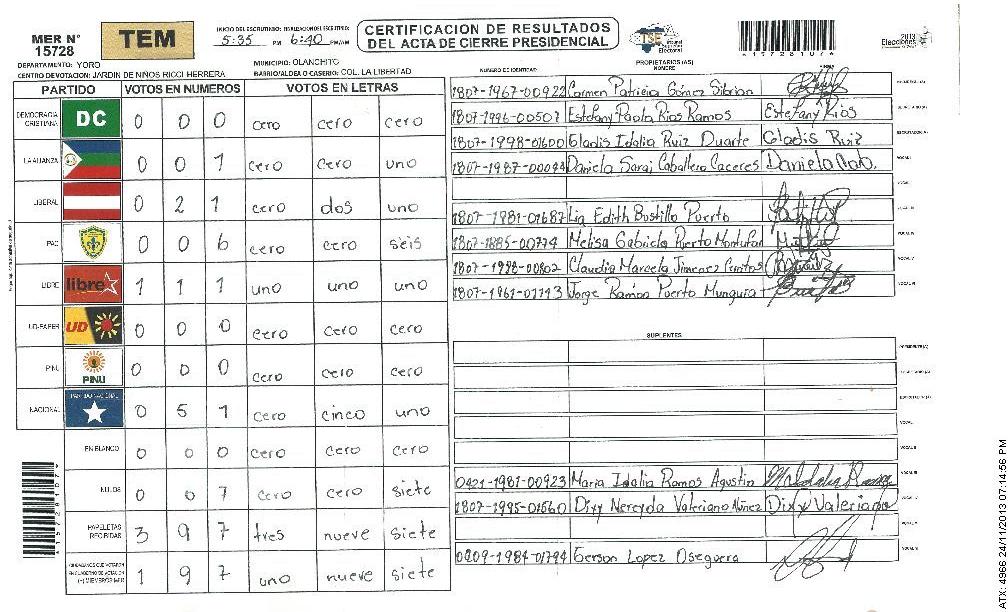 MER N° 15728
TEM
INICIO DEL ESCRUTINIO: FINALIZACION DEL ESCRUTINIO:
5:35 PM 6:40 PM/AM
CERTIFICACION DE RESULTADOS
DEL ACTA DE CIERRE PRESIDENCIAL
TSE
Tribunal Supremo Electoral
2013
Elecciones
DEPARTAMENTO: YORO
MUNICIPIO: OLANCHITO
CENTRO DE VOTACION: JARDIN DE NIÑOS RICCI HERRERA
BARRIO/ALDEA O CASERIO: COL. LA LIBERTAD
PARTIDO VOTOS EN NUMEROS VOTOS EN LETRAS
DEMOCRACIA CRISTIANA DC 0 0 0 cero cero cero
LA ALIANZA 0 0 1 cero cero uno
LIBERAL 0 2 1 cero dos uno
PAC 0 0 6 cero cero seis
LIBRE libre 1 1 1 uno uno uno
UD-FAPER UD 0 0 0 cero cero cero
PINU PINU 0 0 0 cero cero cero
NACIONAL PARTIDO NACIONAL 0 5 1 cero cinco uno
EN BLANCO 0 0 0 cero cero cero
NULOS 0 0 7 cero cero siete
PAPELETAS RECIBIDAS 3 9 7 tres nueve siete
CIUDADANOS QUE VOTARON EN CUADERNO DE VOTACION (+) MIEMBROS MER 1 9 7 uno nueve siete
PROPIETARIOS (AS)
NUMERO DE IDENTIDAD NOMBRE FIRMA
1807-1967-00922 Carmen Patricia Gómez Sibrian
1807-1996-00507 Estefany Paola Rios Ramos Estefany Rios
1807-1998-01600 Gladis Idalia Ruiz Duarte Gladis Ruiz
1807-1987-00094 Daniela Sarai Caballero Caceres
1807-1981-01687 Lia Edith Bustillo Puerto
1807-1885-00774 Melisa Gabriela Puerto Montufar
Claudia Marcela Jimenez
1807-1961-01793 Jorge Ramón Puerto Munguia
SUPLENTES
0421-1981-00923 Maria Idalia Ramos Agustin
1807-1995-01560 Dixy Nereyda Valeriano Núñez Dixy Valeriano
0209-1984-01794 Gerson Lopez Oseguera
ATX: 4966 24/11/2013 07:14:56 PM